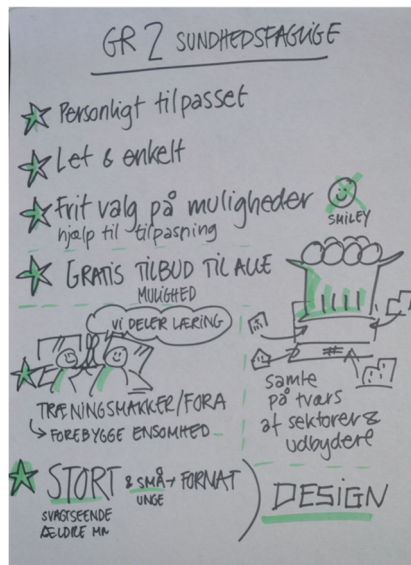 GR 2 SUNDHEDSFAGLIGE
Personligt tilpasset
Let & enkelt
Frit valg på muligheder
hjælp til tilpasning
SMILEY
GRATIS TILBUD TIL ALLE
MULIGHED
Vi DELER LÆRING
TRÆNINGSMAKKER/FORA
↳ FOREBYGGE ENSOMHED
samle
på tværs
af sektorer &
udbydere
STORT & SMÅ → FORMAT
SVAGTSEENDE UNGE
ÆLDRE MM
DESIGN